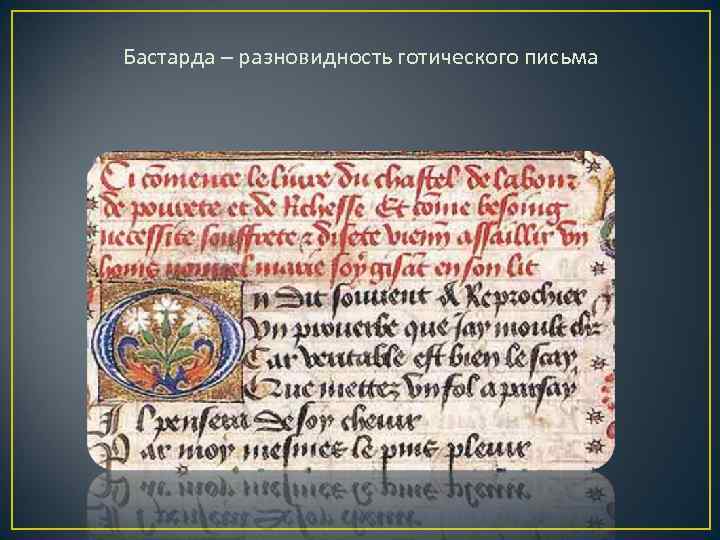 Бастарда – разновидность готического письма
Ci cōmence le liure du chastel de labour
de pourete et de Richesse Et cōme besoing
necessite souffrete et disete vienn assaillir vn
home nouuel marie soy gisāt en son lit
On dit souuent & Reprochier
Vn prouerbe que jay moult chr
Car veritable est bien le scay
Que mettez vn fol a par say
Il pensera de soy cheuir
Par moy mesmes le puis pleuir